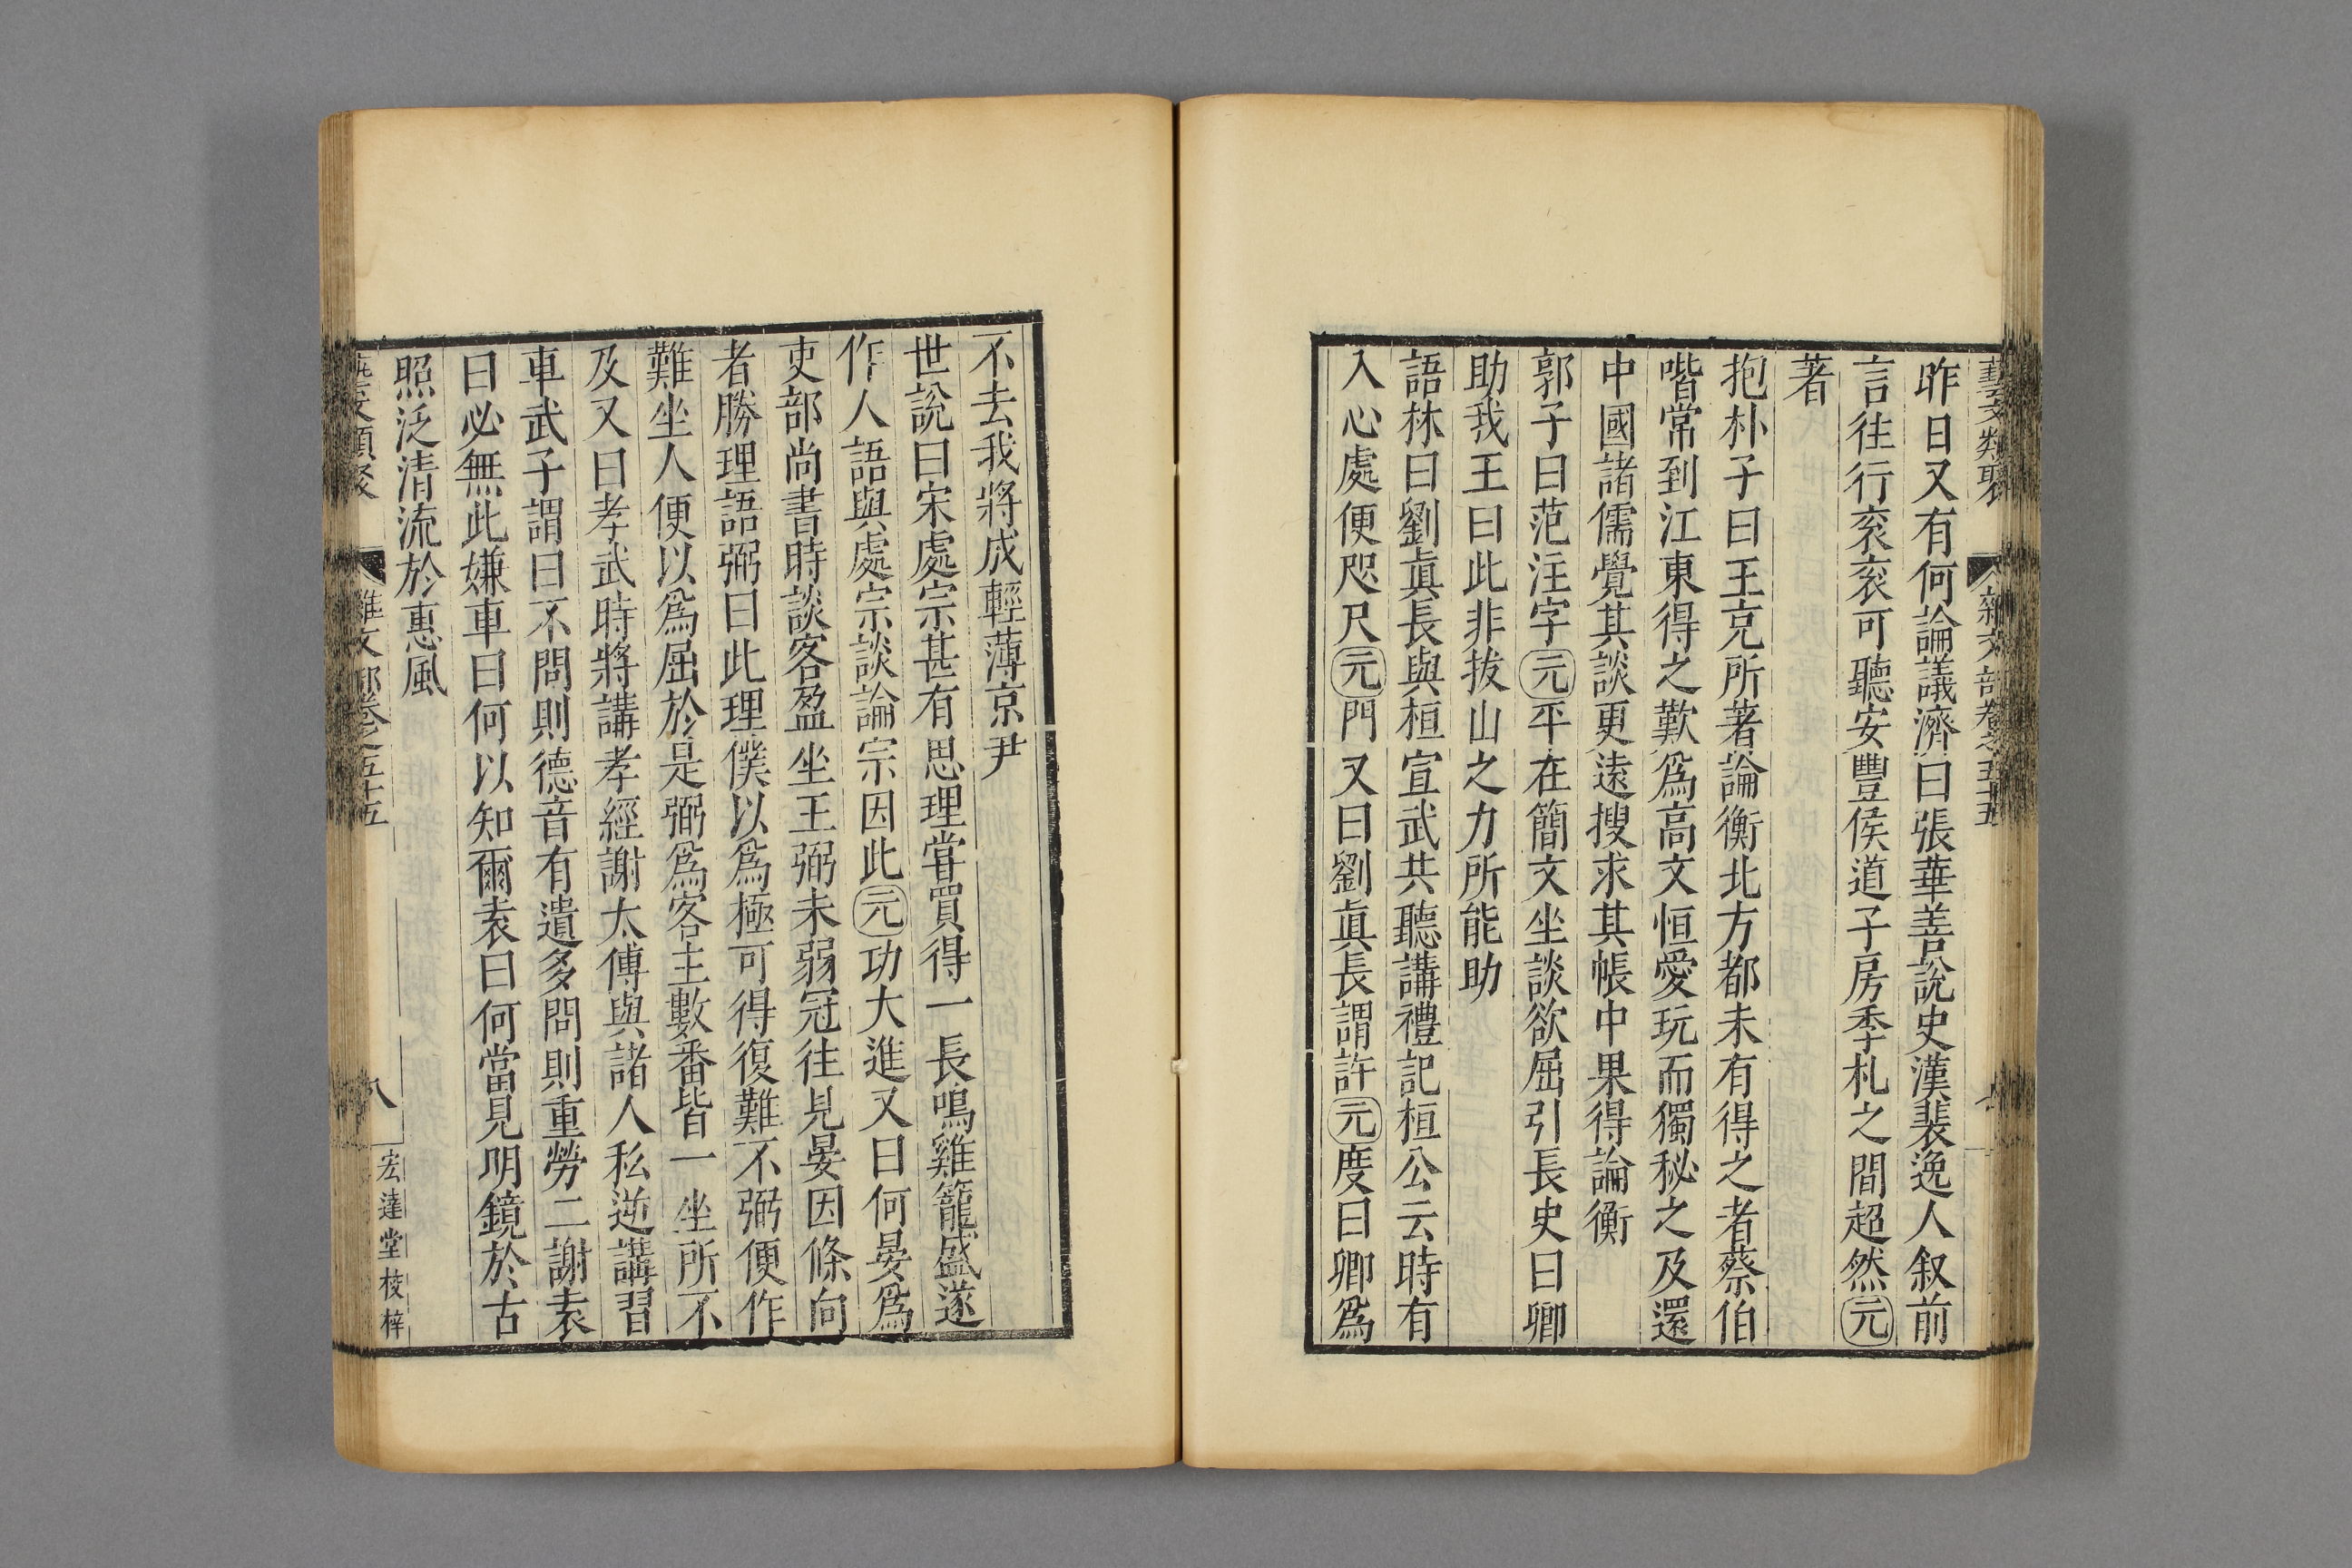 藝文類聚 雜文部卷之五十五
昨日又有何論議濟曰張華善說史漢裴逸人叙前
言徃行衮衮可聽安豐侯道子房季札之間超然元
著
抱朴子曰王充所著論衡北方都未有得之者蔡伯
喈常到江東得之歎爲高文恒愛玩而獨秘之及還
中國諸儒覺其談更遠搜求其帳中果得論衡
郭子曰范汪字元平在簡文坐談欲屈引長史曰卿
助我王曰此非拔山之力所能助
語林曰劉眞長與桓宣武共聽講禮記桓公云時有
入心處便咫尺元門又曰劉眞長謂許元度曰卿爲
不去我將成輕薄京尹
世說曰宋處宗甚有思理甞買得一長鳴雞籠盛遂
作人語與處宗談論宗因此元功大進又曰何晏爲
吏部尚書時談客盈坐王弼未弱冠徃見晏因條向
者勝理語弼曰此理僕以爲極可得復難不弼便作
難坐人便以爲屈於是弼爲客主數番皆一坐所不
及又曰孝武時將講孝經謝太傅與諸人私逆講習
車武子謂曰不問則德音有遺多問則重勞二謝袁
曰必無此嫌車曰何以知爾袁曰何當見明鏡於古
照泛清流於惠風
藝文類聚 雜文部卷之五十五 八 宏達堂校梓